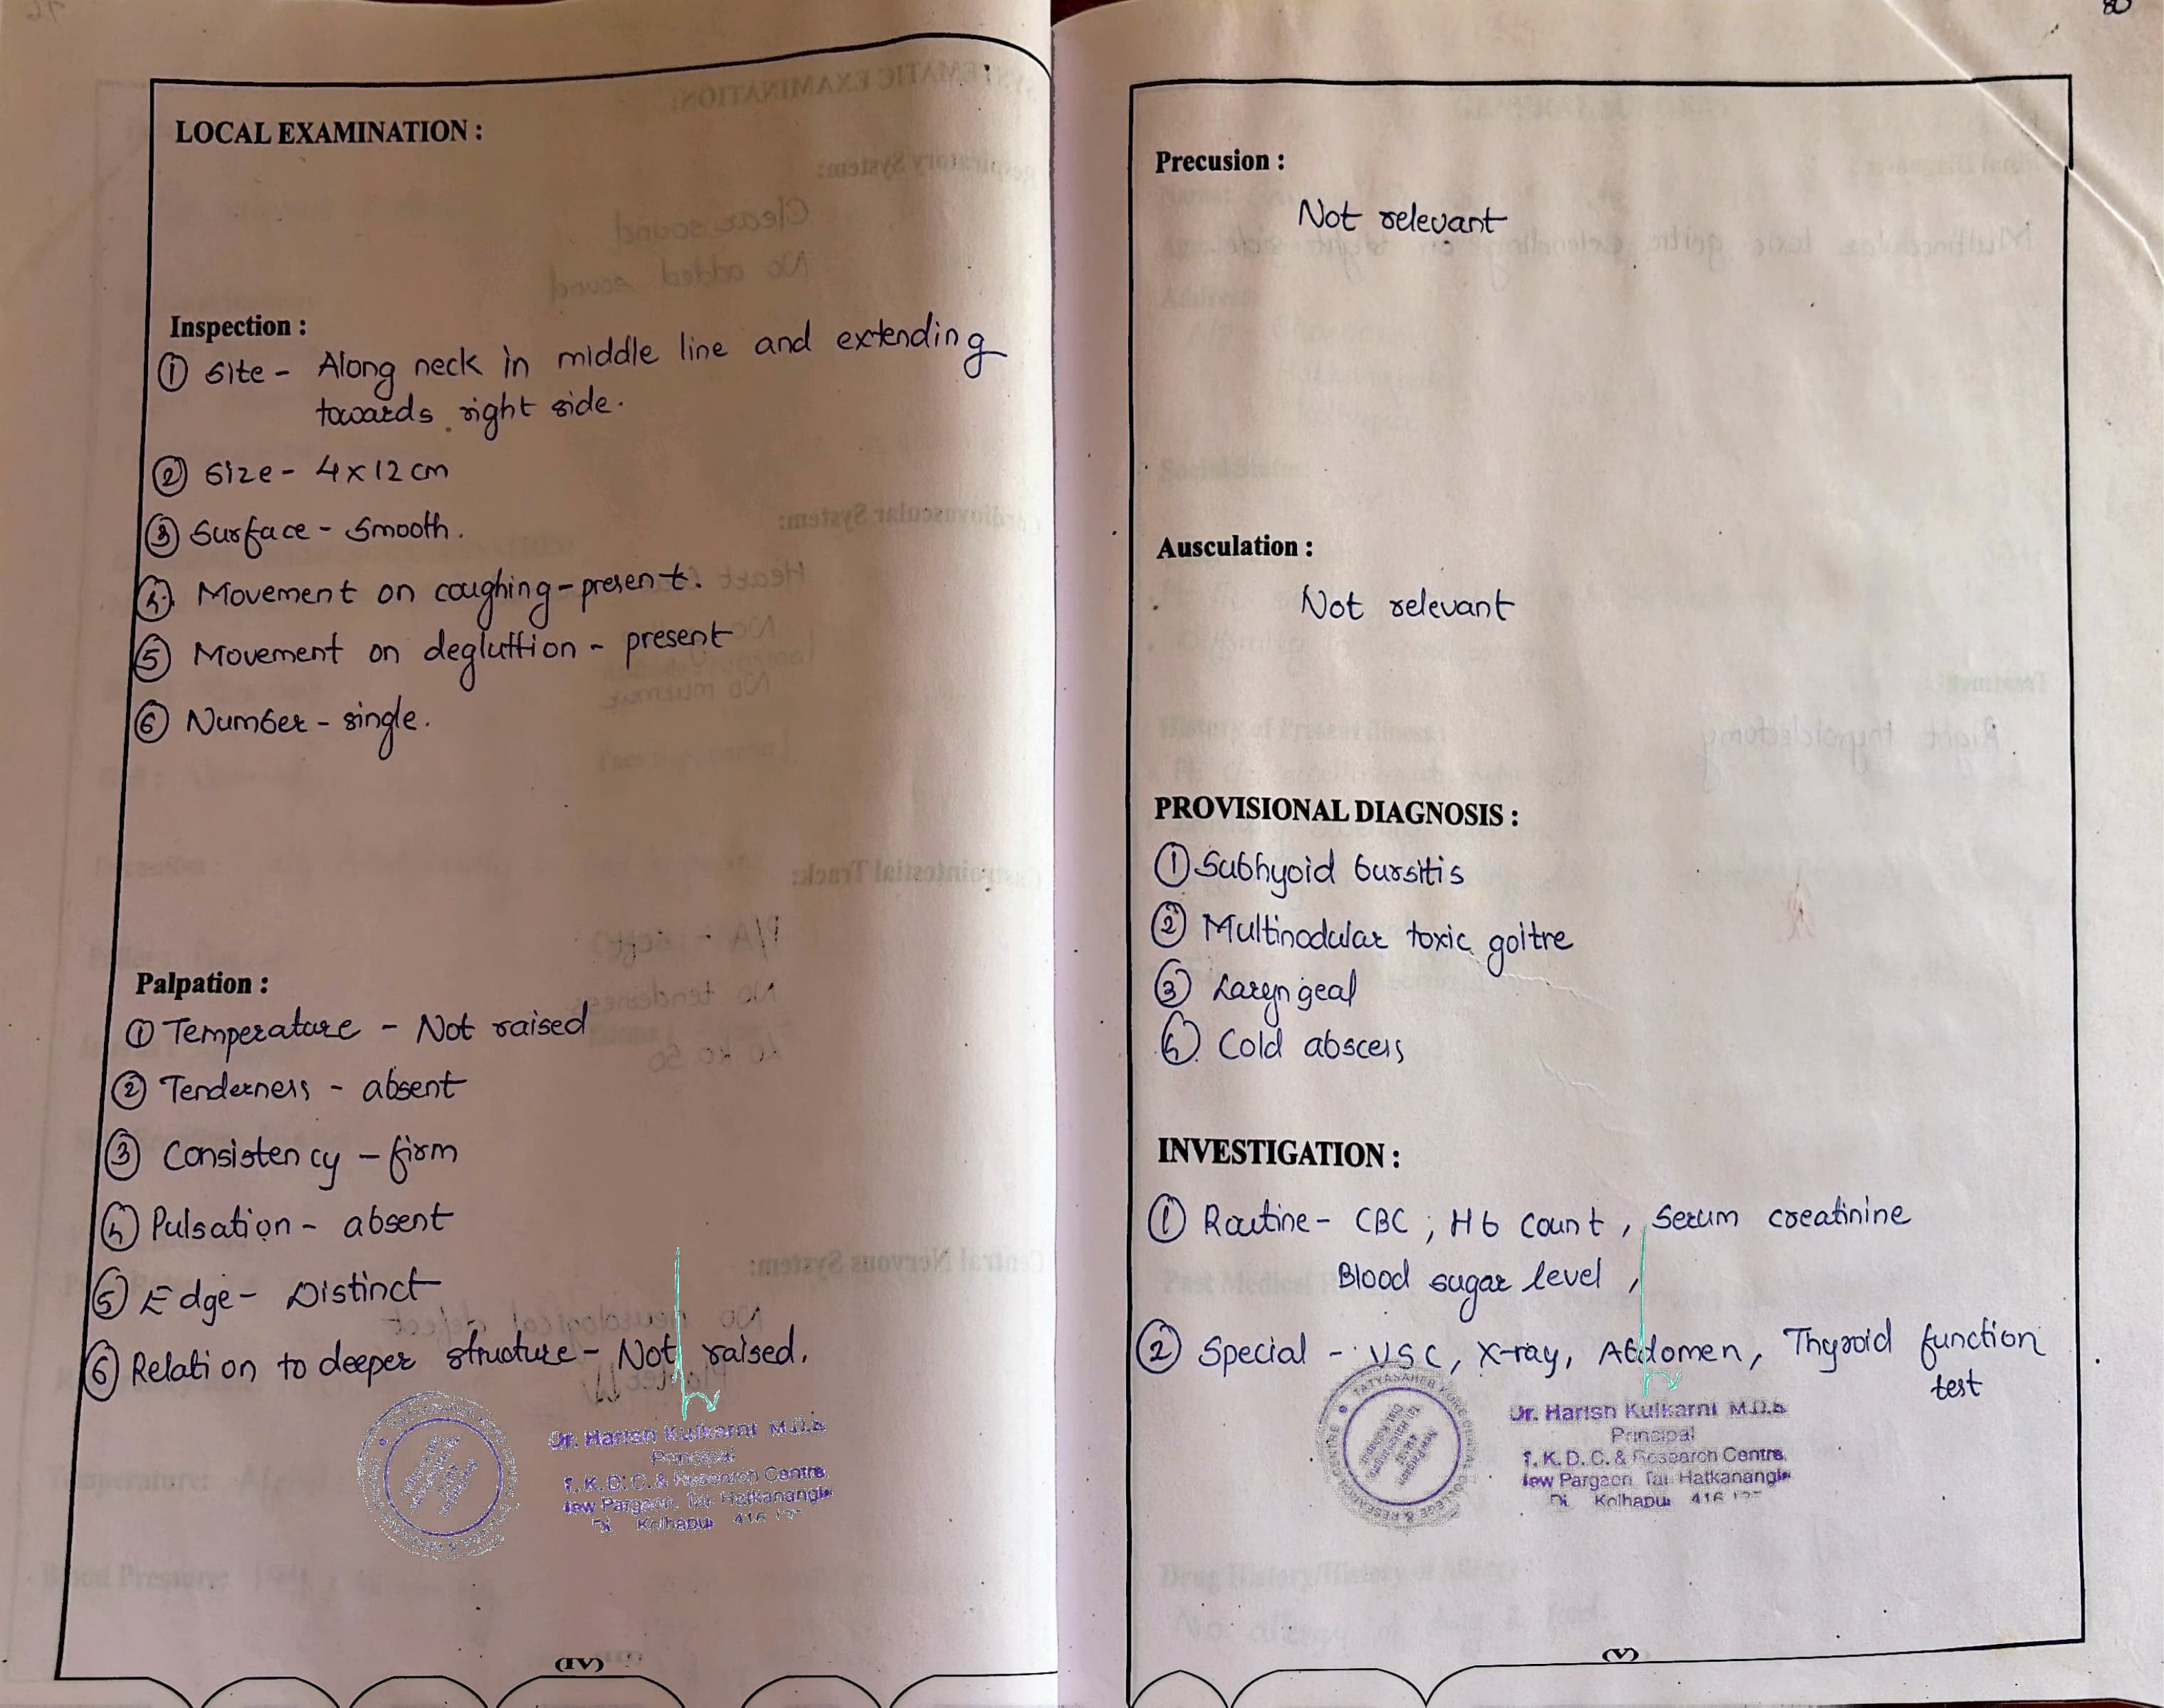 LOCAL EXAMINATION :
Inspection :
① Site - Along neck in middle line and extending
towards right side.
② Size - 4 x 12 cm
③ Surface - Smooth.
④ Movement on coughing - present.
⑤ Movement on degluttion - present
⑥ Number - single.
Palpation :
① Temperature - Not raised
② Tenderness - absent
③ Consistency - firm
④ Pulsation - absent
⑤ Edge - Distinct
⑥ Relation to deeper structure - Not raised.
Dr. Harish Kulkarni M.D.S
Principal
T. K. D. C. & Research Centre
New Pargaon, Tal. Hatkanangle
Kolhapur 416
(IV)
Precusion :
Not relevant
Ausculation :
Not relevant
PROVISIONAL DIAGNOSIS :
① Subhyoid bursitis
② Multinodular toxic goitre
③ Laryngeal
④ Cold abscess
INVESTIGATION :
① Routine - CBC ; Hb count , Serum creatinine
Blood sugar level ,
② Special - USC, X-ray, Abdomen, Thyroid function
test
TATYASAHEB KORE DENTAL COLLEGE & RESEARCH CENTRE
Dr. Harish Kulkarni M.D.S
Principal
T. K. D. C. & Research Centre,
New Pargaon, Tal. Hatkanangle
Di Kolhapur 416
(V)